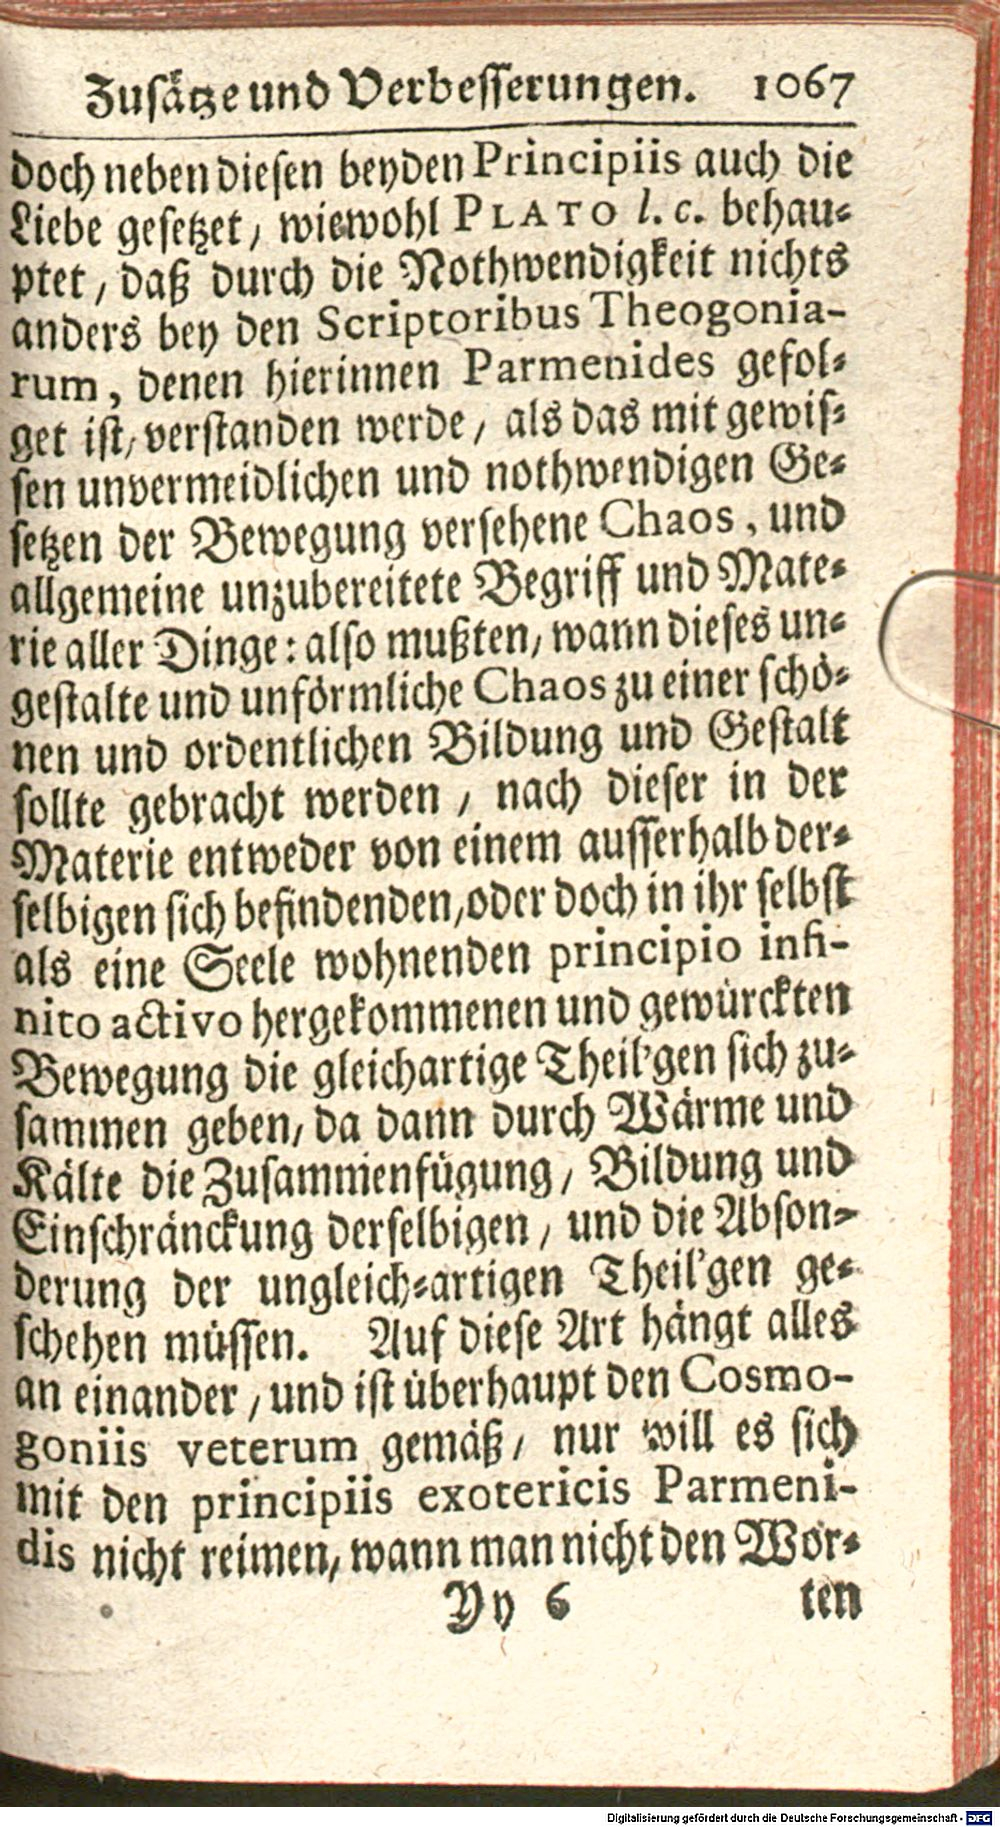 Zusätze und Verbesserungen. 1067
doch neben diesen beyden Principiis auch die
Liebe gesetzet, wiewohl PLATO l. c. behau-
ptet, daß durch die Nothwendigkeit nichts
anders bey den Scriptoribus Theogonia-
rum, denen hierinnen Parmenides gefol-
get ist, verstanden werde, als das mit gewis-
sen unvermeidlichen und nothwendigen Ge-
setzen der Bewegung versehene Chaos, und
allgemeine unzubereitete Begriff und Mate-
rie aller Dinge: also mußten, wann dieses un-
gestalte und unförmliche Chaos zu einer schö-
nen und ordentlichen Bildung und Gestalt
sollte gebracht werden, nach dieser in der
Materie entweder von einem ausserhalb der-
selbigen sich befindenden, oder doch in ihr selbst
als eine Seele wohnenden principio infi-
nito activo hergekommenen und gewürckten
Bewegung die gleichartige Theil'gen sich zu-
sammen geben, da dann durch Wärme und
Kälte die Zusammenfügung, Bildung und
Einschränckung derselbigen, und die Abson-
derung der ungleich-artigen Theil'gen ge-
schehen müssen. Auf diese Art hängt alles
an einander, und ist überhaupt den Cosmo-
goniis veterum gemäß, nur will es sich
mit den principiis exotericis Parmeni-
dis nicht reimen, wann man nicht den Wor-
Yy 6 ten
Digitalisierung gefördert durch die Deutsche Forschungsgemeinschaft - DFG